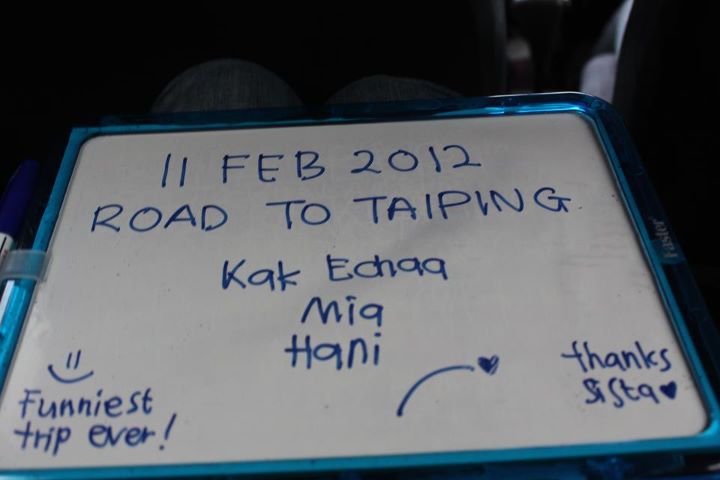 11 FEB 2012
ROAD TO TAIPING
Kak Echaa
Mia
Hani
Funniest
trip ever!
thanks
Sista
Easter